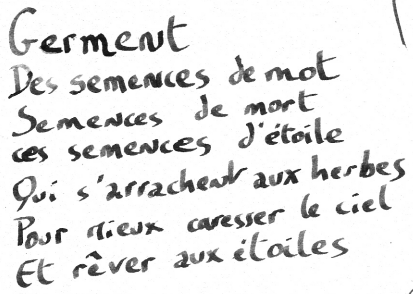 Germent
Des semences de mot
Semences de mort
ces semences d'étoile
Qui s'arrachent aux herbes
Pour mieux caresser le ciel
Et rêver aux étoiles